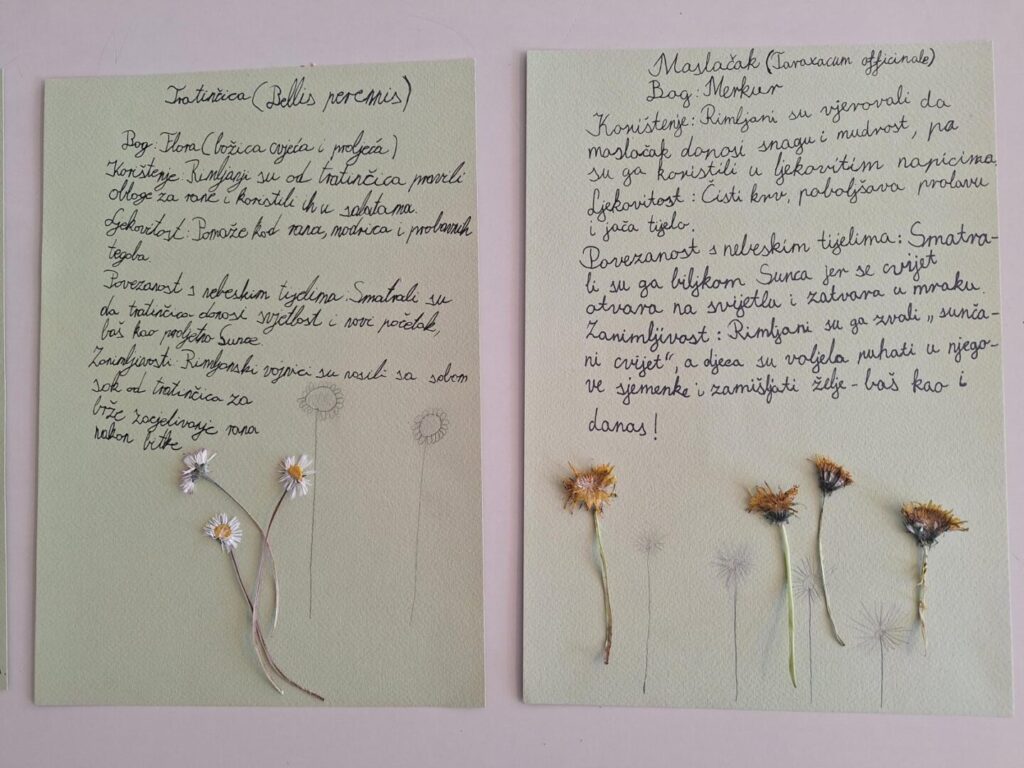 Tratinčica (Bellis perennis)
Bog: Flora (božica cvjeća i proljeća)
Korištenje: Rimljani su od tratinčica pravili
obloge za rane i koristili ih u salatama.
Ljekovitost: Pomaže kod rana, modrica i probavnih
tegoba.
Povezanost s nebeskim tijelima: Smatrali su
da tratinčica donosi svjetlost i novi početak,
baš kao proljetno Sunce.
Zanimljivosti: Rimljanski vojnici su nosili sa sobom
sok od tratinčica za
brže zacjelivanje rana
nakon bitke
Maslačak (Taraxacum officinale)
Bog: Merkur
Korištenje: Rimljani su vjerovali da
maslačak donosi snagu i mudrost, pa
su ga koristili u ljekovitim napicima.
Ljekovitost: Čisti krv, poboljšava probavu
i jača tijelo.
Povezanost s nebeskim tijelima: Smatra-
li su ga biljkom Sunca jer se cvijet
otvara na svijetlu i zatvara u mraku.
Zanimljivost: Rimljani su ga zvali „sunča-
ni cvijet“, a djeca su voljela puhati u njego-
ve sjemenke i zamišljati želje - baš kao i
danas!